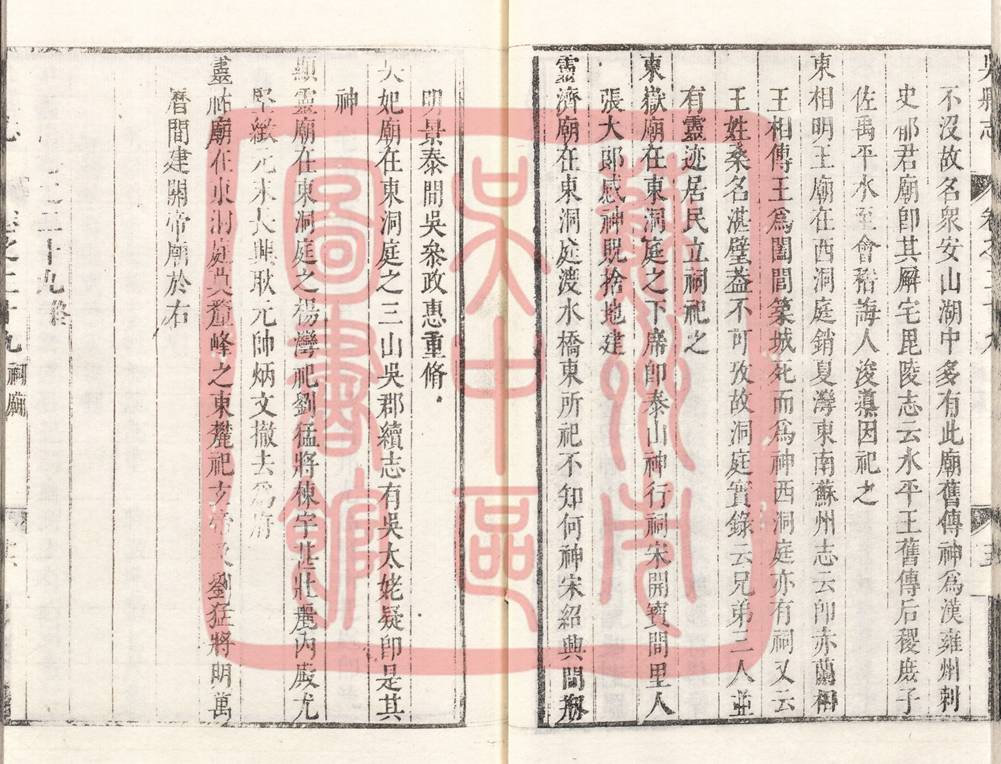 不沒故名衆安山湖中多有此廟舊傳神爲漢雍州刺
史郁君廟卽其廨宅毘陵志云水平王舊傳后稷庶子
佐禹平水至會稽誨人浚導因祀之
東相明王廟在西洞庭銷夏灣東南蘇州志云卽赤蘭相
王相傳王爲闔閭築城死而爲神西洞庭亦有祠又云
王姓桑名湛璧葢不可攷故洞庭實錄云兄弟三人並
有靈迹居民立祠祀之
東嶽廟在東洞庭之下席卽泰山神行祠宋開寶間里人
張大郎感神旣捨地建
靈濟廟在東洞庭渡水橋東所祀不知何神宋紹興間
明景泰間吳叅政惠重脩
妃廟在東洞庭之三山吳郡續志有吳太姥疑卽是其
神
顯靈廟在東洞庭之楊灣祀劉猛將棟宇甚壯麗內殿尤
堅緻元末長興耿元帥炳文撤去爲府
靈祐廟在東洞庭莫釐峰之東麓祀玄帝及劉猛將明萬
曆間建關帝廟於右
祠廟
蘇州市
吳中區
圖書館